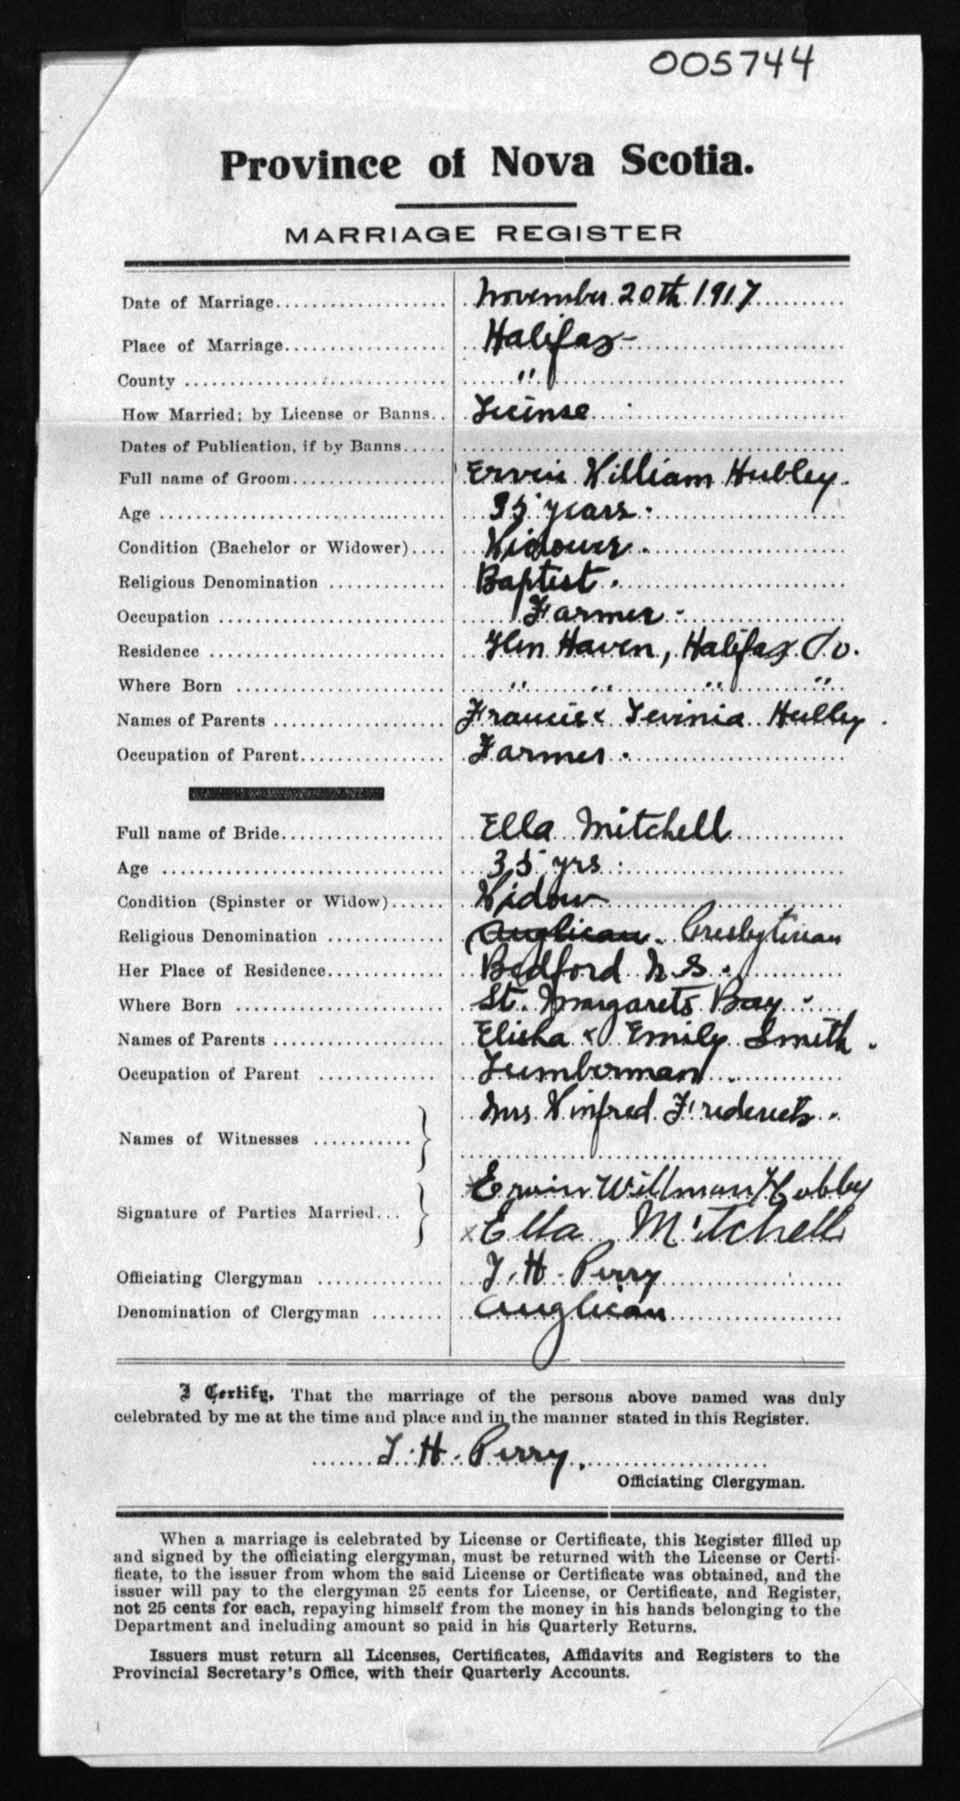 005744
Province of Nova Scotia.
MARRIAGE REGISTER
Date of Marriage November 20th 1917
Place of Marriage Halifax
County "
How Married; by License or Banns License
Dates of Publication, if by Banns
Full name of Groom Ervin William Hubley.
Age 35 years.
Condition (Bachelor or Widower) Widower.
Religious Denomination Baptist.
Occupation Farmer
Residence Glen Haven, Halifax Co.
Where Born " " " "
Names of Parents Francis & Levinia Hubley.
Occupation of Parent Farmer.
Full name of Bride Ella Mitchell
Age 35 yrs.
Condition (Spinster or Widow) Widow
Religious Denomination Anglican. Presbyterian
Her Place of Residence Bedford N.S.
Where Born St. Margarets Bay
Names of Parents Elisha & Emily Smith.
Occupation of Parent Lumberman.
Names of Witnesses Mrs Winfred
Signature of Parties Married x Ervin Hubley
x Ella Mitchell
Officiating Clergyman T. H. Perry
Denomination of Clergyman Anglican
I Certify, That the marriage of the persons above named was duly
celebrated by me at the time and place and in the manner stated in this Register.
T. H. Perry.
Officiating Clergyman.
When a marriage is celebrated by License or Certificate, this Register filled up
and signed by the officiating clergyman, must be returned with the License or Certi-
ficate, to the issuer from whom the said License or Certificate was obtained, and the
issuer will pay to the clergyman 25 cents for License, or Certificate, and Register,
not 25 cents for each, repaying himself from the money in his hands belonging to the
Department and including amount so paid in his Quarterly Returns.
Issuers must return all Licenses, Certificates, Affidavits and Registers to the
Provincial Secretary's Office, with their Quarterly Accounts.